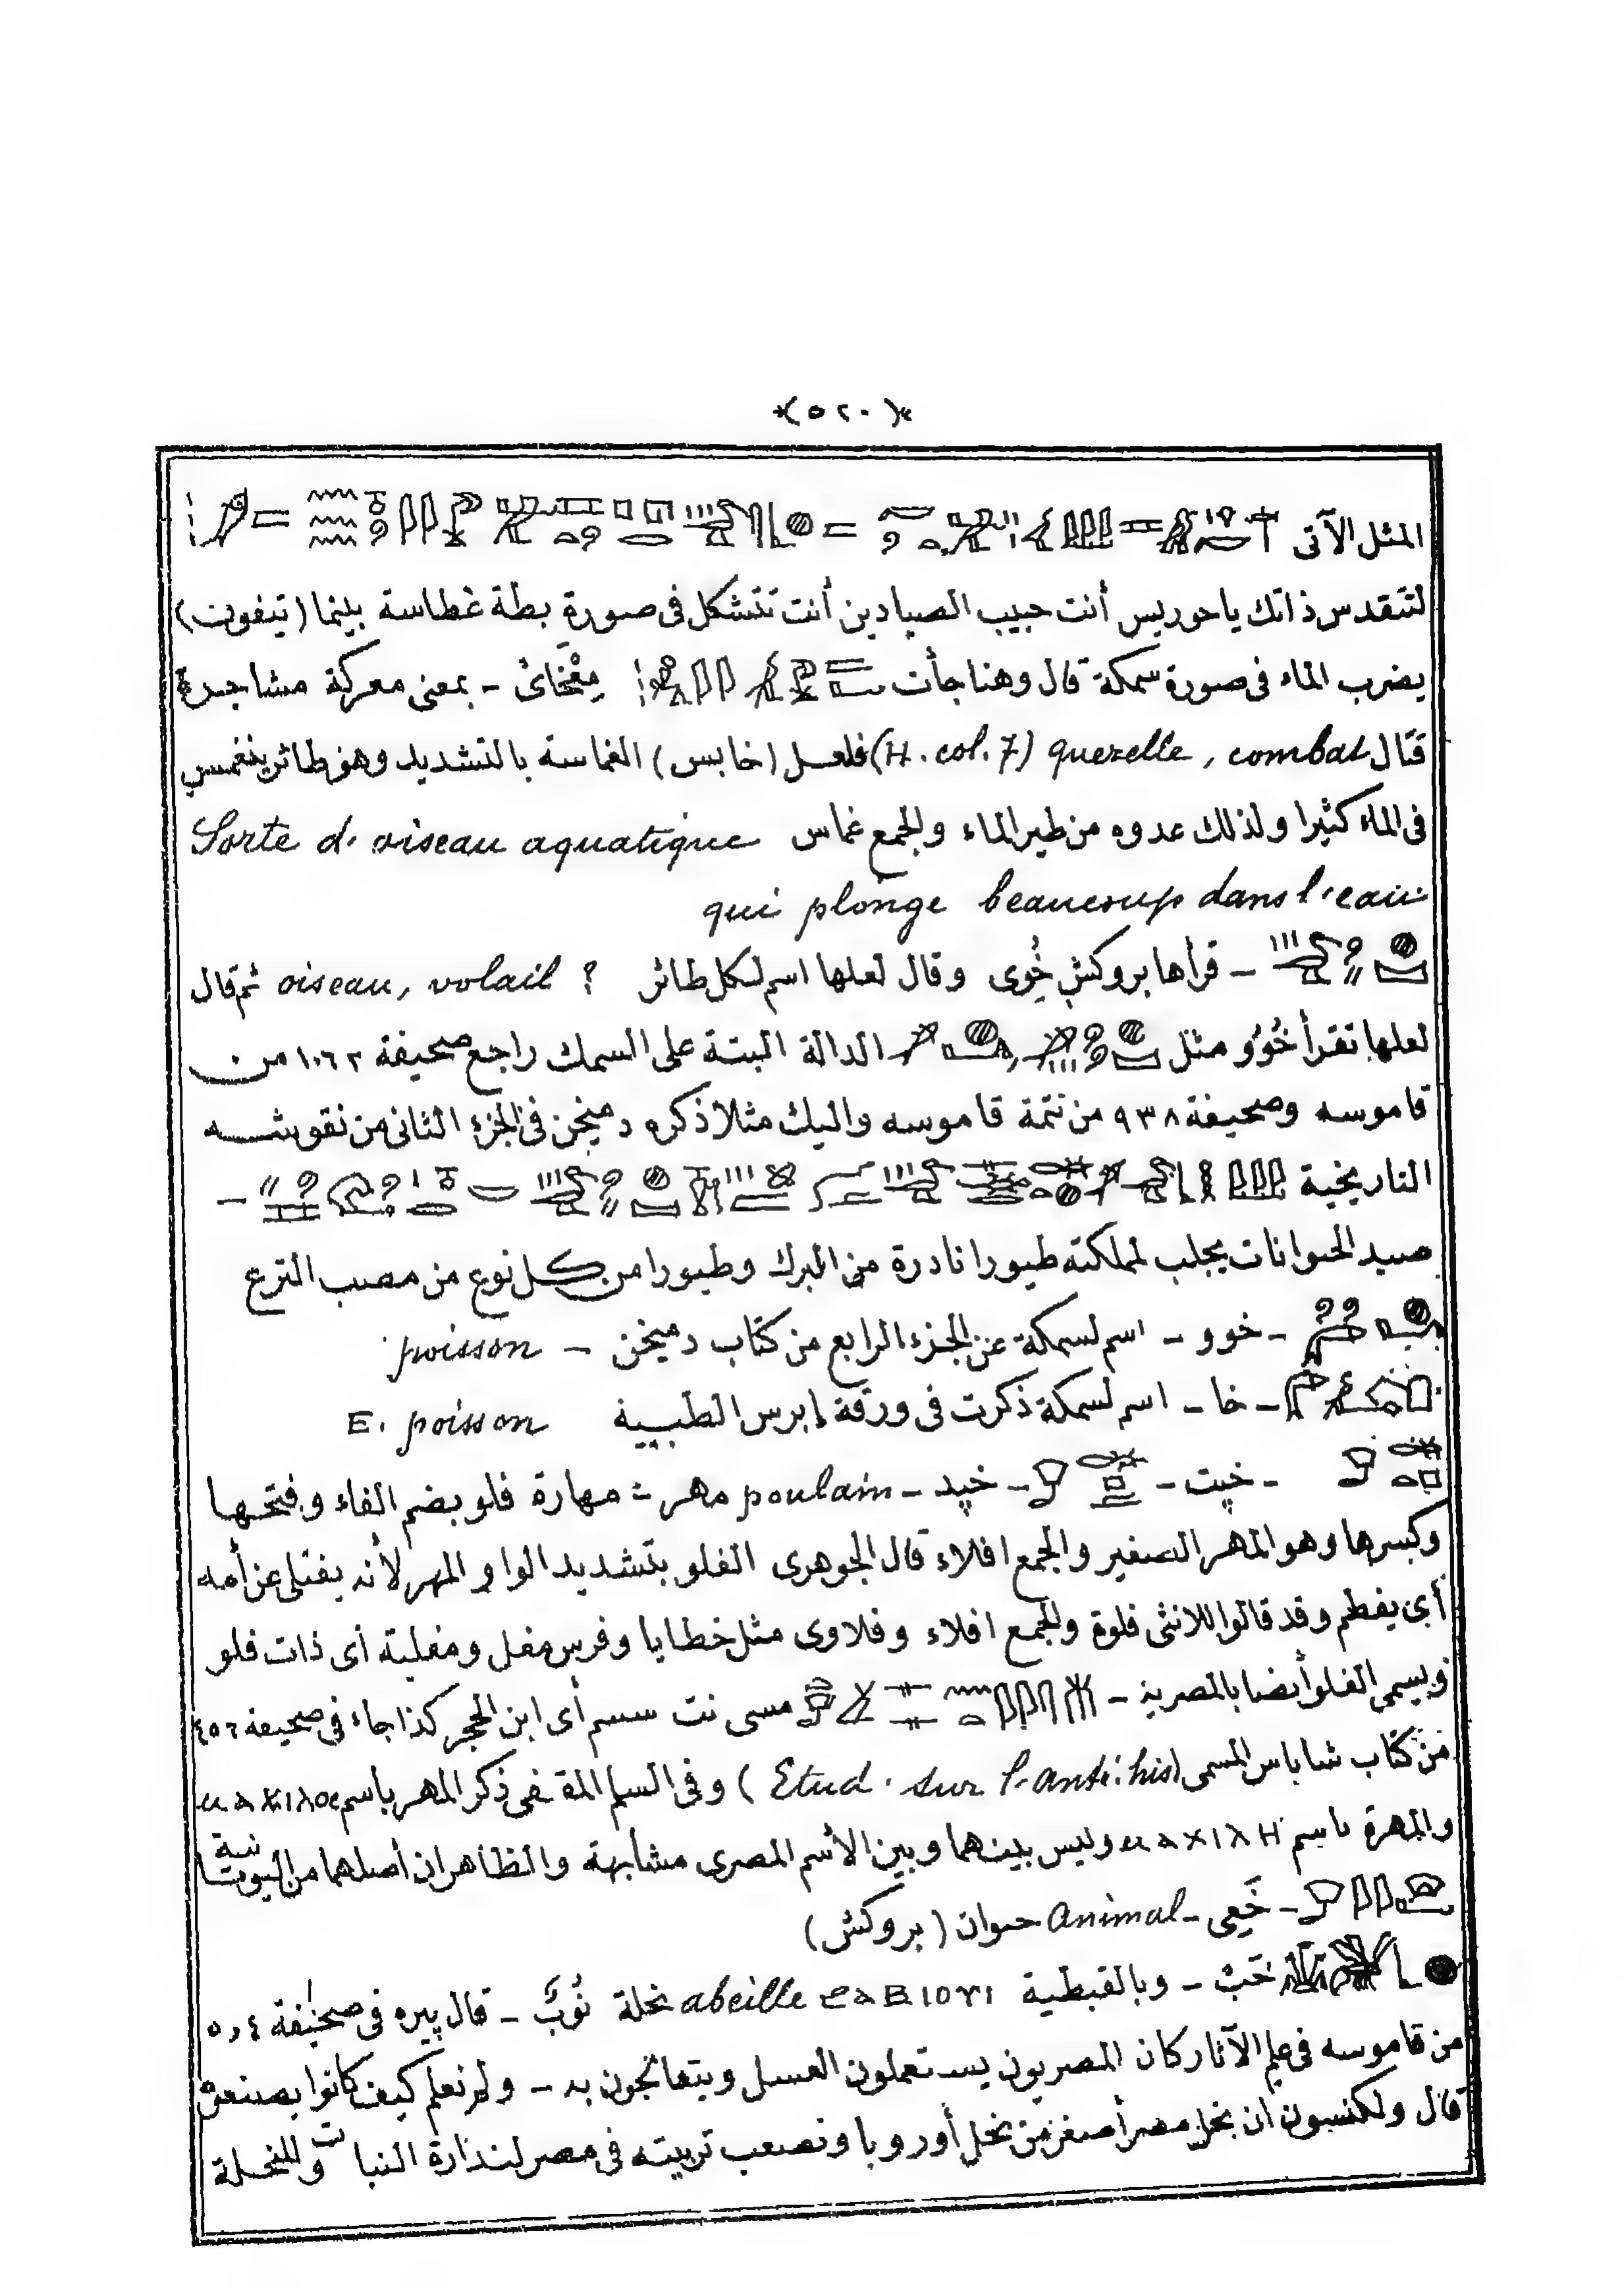 ﴿٥٢٠﴾
المثل الآتى
لتتقدس ذاتك ياحوريس أنت حبيب الصيادين أنت تتشكل فى صورة بطة غطاسة بينما (تيفون)
يضرب الماء فى صورة سمكة قال وهنا جأت - بمعنى معركة مشاجرة
قتال querelle, combat (H. col. 7) فلعل (خابس) الغماسة بالتشديد وهو طائر ينغمس
فى الماء كثيرا ولذلك عدوه من طير الماء والجمع غماس Sorte d. oiseau aquatique
qui plonge beaucoup dans l'eau
- قرأها بروكش خُوى وقال لعلها اسم لكل طائر ? oiseau, volail ثم قال
لعلها تقرأ خُوُو مثل الدالة البتة على السمك راجع صحيفة ١٠٦٢ من
قاموسه وصحيفة ٩٣٨ من تتمة قاموسه واليك مثلا ذكره دميخن فى الجزء الثانى من نقوشه
التاريخية -
صيد الحيوانات يجلب لمملكته طيورا نادرة من البرك وطيورا من كل نوع من مصب الترع
- خوو - اسم لسمكة عن الجزء الرابع من كتاب دميخن - poisson
- خا - اسم لسمكة ذكرت فى ورقة إبرس الطبية E. poisson
- خپت - - خپد - poulain مهر : مهارة فلو بضم الفاء وفتحها
وكسرها وهو المهر الصغير والجمع افلاء قال الجوهرى الفلو بتشديد الواو المهر لأنه يفتلى عن أمه
أى يفطم وقد قالوا للانثى فلوة والجمع افلاء وفلاوى مثل خطايا وفرس مفل ومفلية أى ذات فلو
ويسمى الفلو أيضا بالمصرية - مسى نت سسم أى ابن الحجر كذا جاء فى صحيفة ٤٥٦
من كتاب شاباس المسمى (Etud. sur l. anti. his) وفى السلم المقفى ذكر المهر بأسم
والمهرة باسم ⲙⲁϫⲓⲗⲏ وليس بينهما وبين الأسم المصرى مشابهة والظاهر ان أصلهما من اليونانية
- خَعِى - animal حيوان (بروكش)
خَبْ - وبالقبطية abeille نحلة نُوبٌ - قال پيره فى صحيفة ٥٠٤
من قاموسه فى علم الآثار كان المصريون يستعملون العسل ويتعالجون به - ولم نعلم كيف كانوا يصنعونه
قال ولكنسون ان نحل مصر أصغر من نحل أوروبا وتصعب تربيته فى مصر لندارة النبات وللنحلة